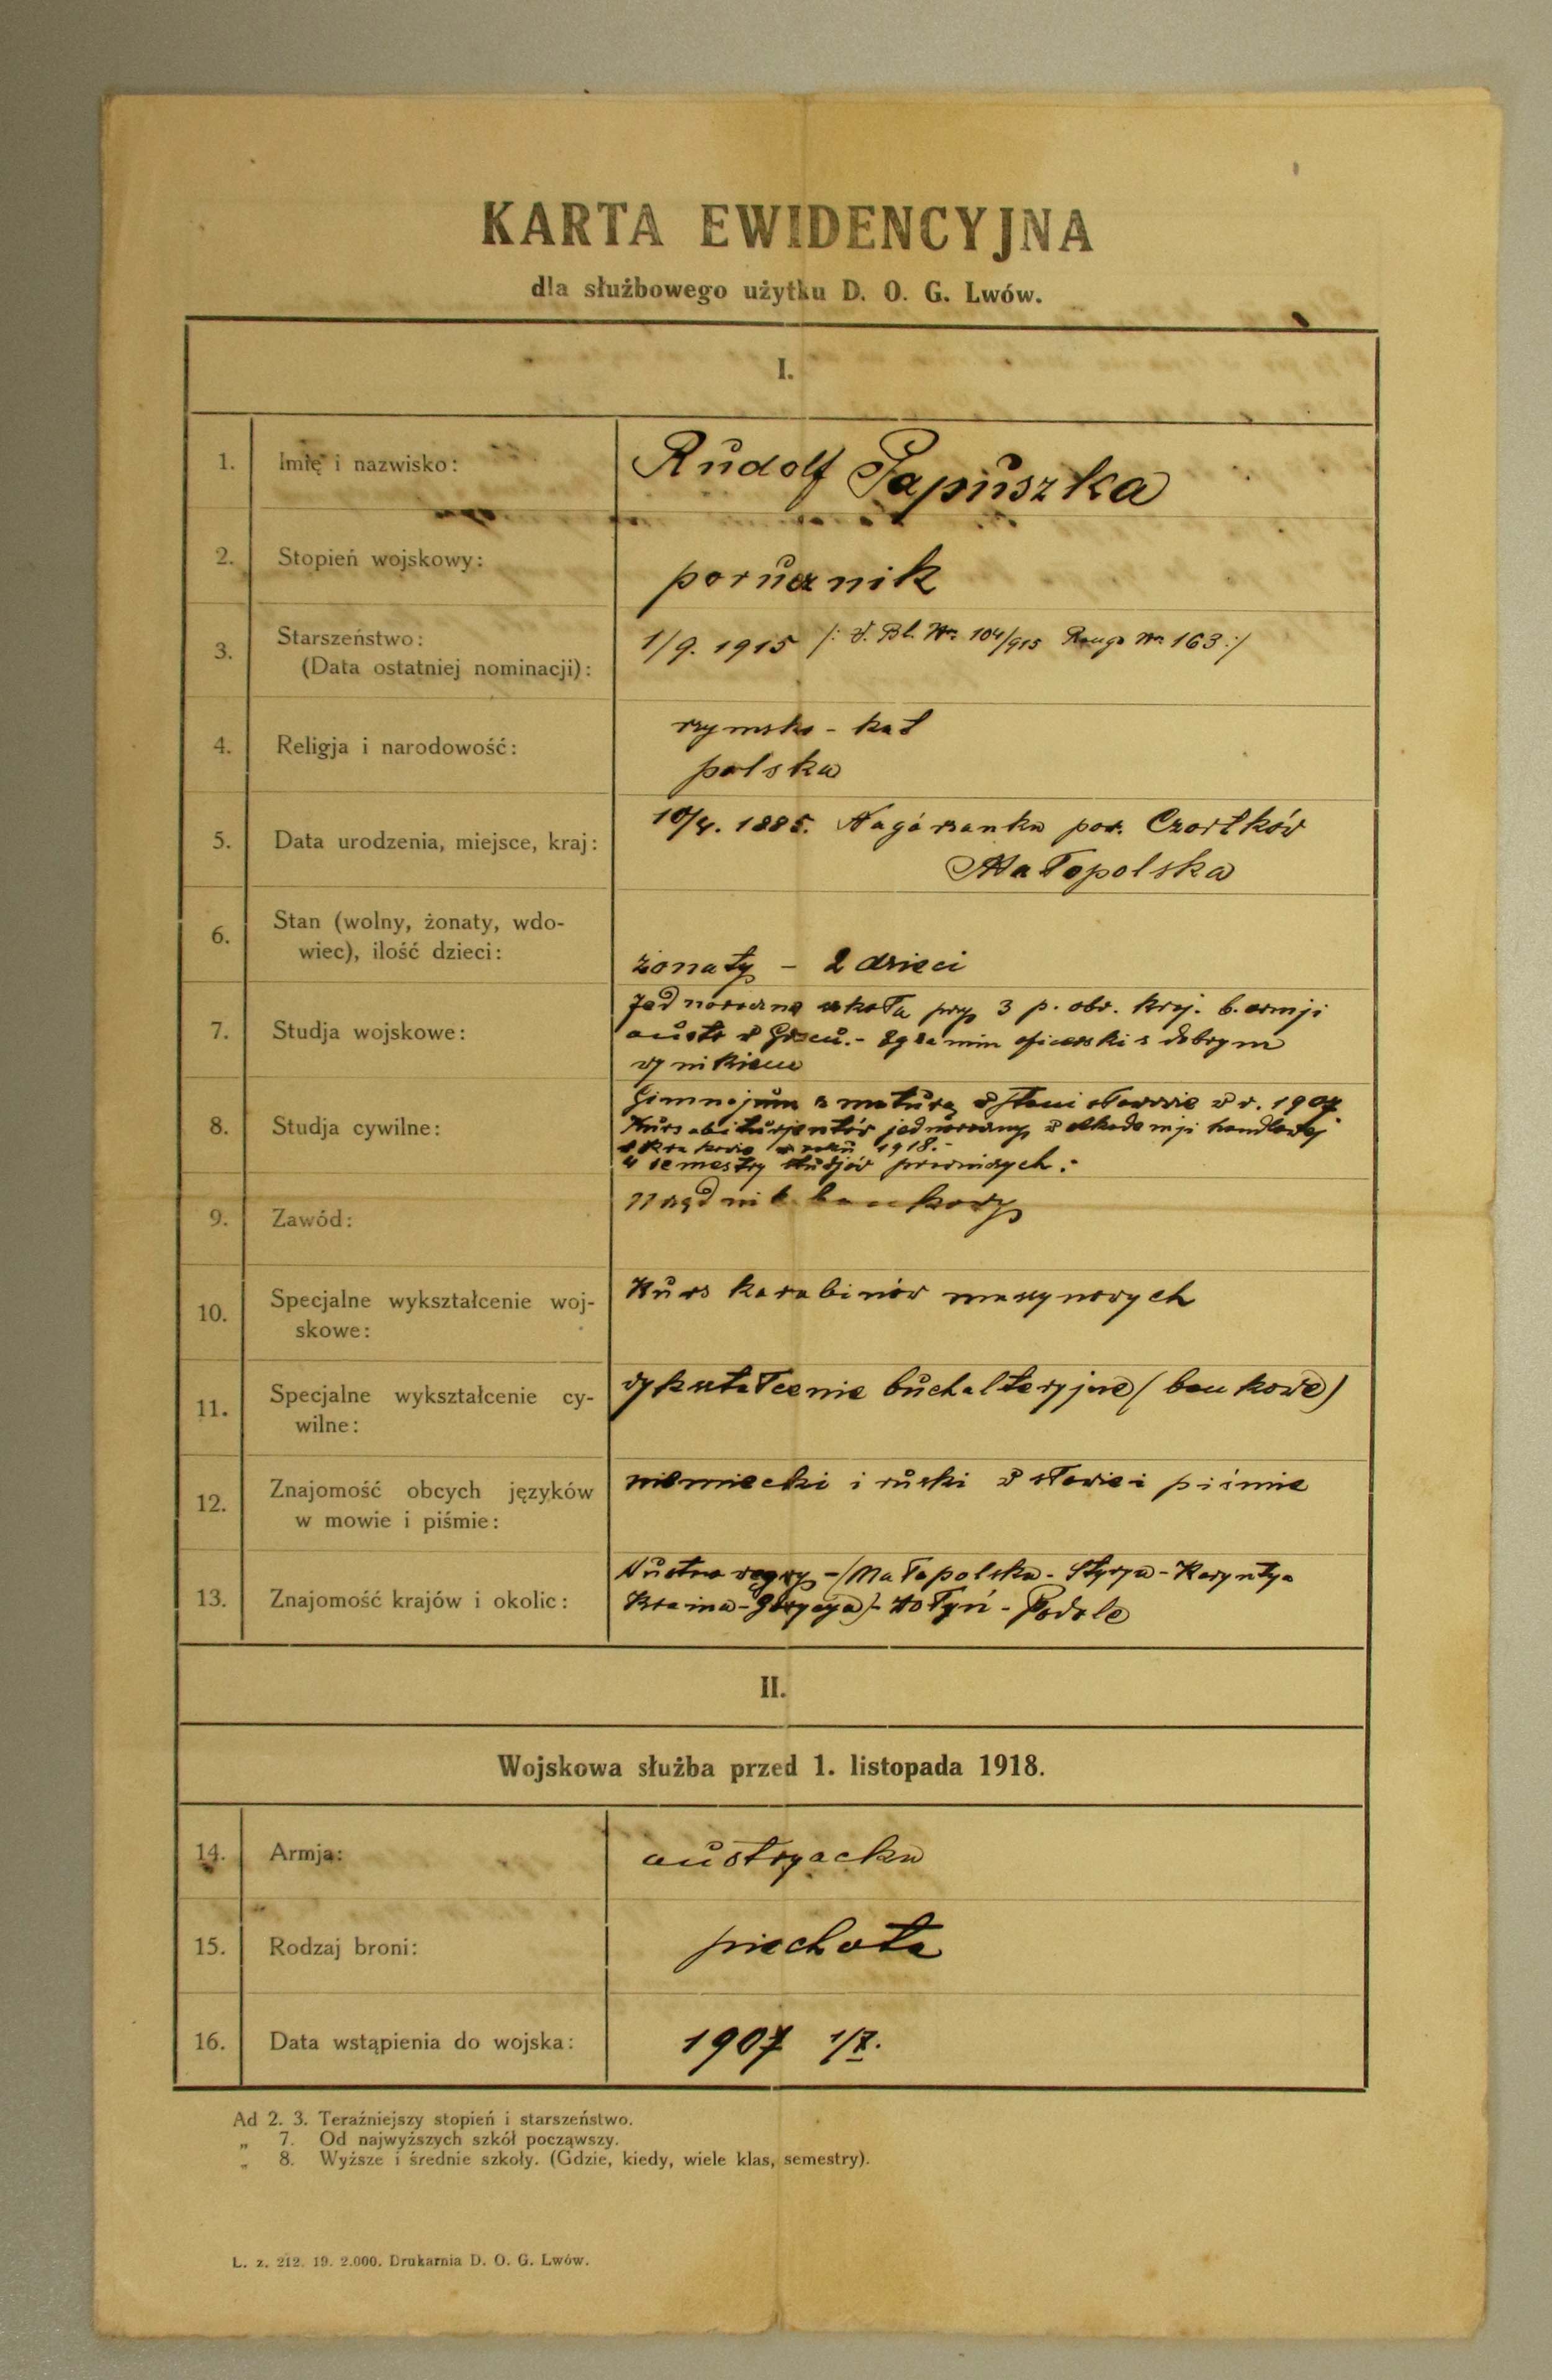 KARTA EWIDENCYJNA
dla służbowego użytku D. O. G. Lwów.
I.
1. Imię i nazwisko: Rudolf Papuszka
2. Stopień wojskowy: porucznik
3. Starszeństwo:
(Data ostatniej nominacji): 1/9. 1915 /: V. Bl. Nr. 104/915 Rangs Nr. 163 :/
4. Religja i narodowość: rzymsko - kat
polska
5. Data urodzenia, miejsce, kraj: 10/4. 1885. Nagórzanka pow. Czortków
Małopolska
6. Stan (wolny, żonaty, wdo-
wiec), ilość dzieci: żonaty - 2 dzieci
7. Studja wojskowe: Jednoroczna szkoła przy 3 p. obr. kraj. b. armji
austr w Gracu. - Egzamin oficerski z dobrym
wynikiem
8. Studja cywilne: Gimnazjum z maturą w Stanisławowie w r. 1907
Kurs abiturjentów jednoroczny w Akademji handlowej
w Krakowie w roku 1918. -
4 semestry studjów prawniczych. -
9. Zawód: urzędnik bankowy
10. Specjalne wykształcenie woj-
skowe: Kurs karabinów maszynowych
11. Specjalne wykształcenie cy-
wilne: wykształcenie buchalteryjne (bankowe)
12. Znajomość obcych języków
w mowie i piśmie: niemiecki i ruski w słowie i piśmie
13. Znajomość krajów i okolic: - (Małopolska - Styrya - Karyntya
Kraina - Gorycya) - Wołyń - Podole
II.
Wojskowa służba przed 1. listopada 1918.
14. Armja: austryacka
15. Rodzaj broni: piechota
16. Data wstąpienia do wojska: 1907 1/X.
Ad 2. 3. Teraźniejszy stopień i starszeństwo.
„ 7. Od najwyższych szkół począwszy.
„ 8. Wyższe i średnie szkoły. (Gdzie, kiedy, wiele klas, semestry).
L. z. 212. 19. 2.000. Drukarnia D. O. G. Lwów.